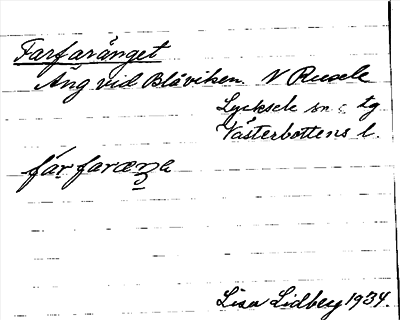 Farfaränget
Äng vid Blåviken. N Rusele
Lycksele sn o tg
Västerbottens l.
farfaræŋe
Lisa Lidberg 1934.